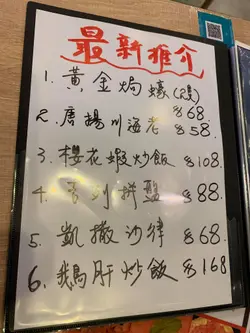 最新推介
1. 黃金焗蠔(2隻) $68
2. 唐揚川海老 $58.
3. 櫻花蝦炒飯 $108
4. 芝士拼盤 $88
5. 凱撒沙律 $68.
6. 鵝肝炒飯 $168